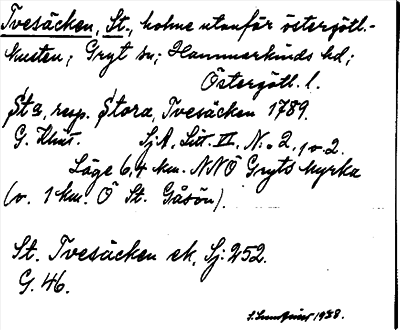 Tvesäcken, St., holme utanför östergötl.-
kusten; Gryt sn; Hammarkinds hd;
Östergötl. l.
St a, resp. Stora, Tvesäcken 1789.
G. Klint. SjA, Litt. VI, N:o 2, 1 o. 2.
Läge 6,4 km. NNÖ Gryts kyrka
(o. 1 km. Ö St. Gåsön).
St. Tvesäcken ek. Sj. 252.
G. 46.
1938.